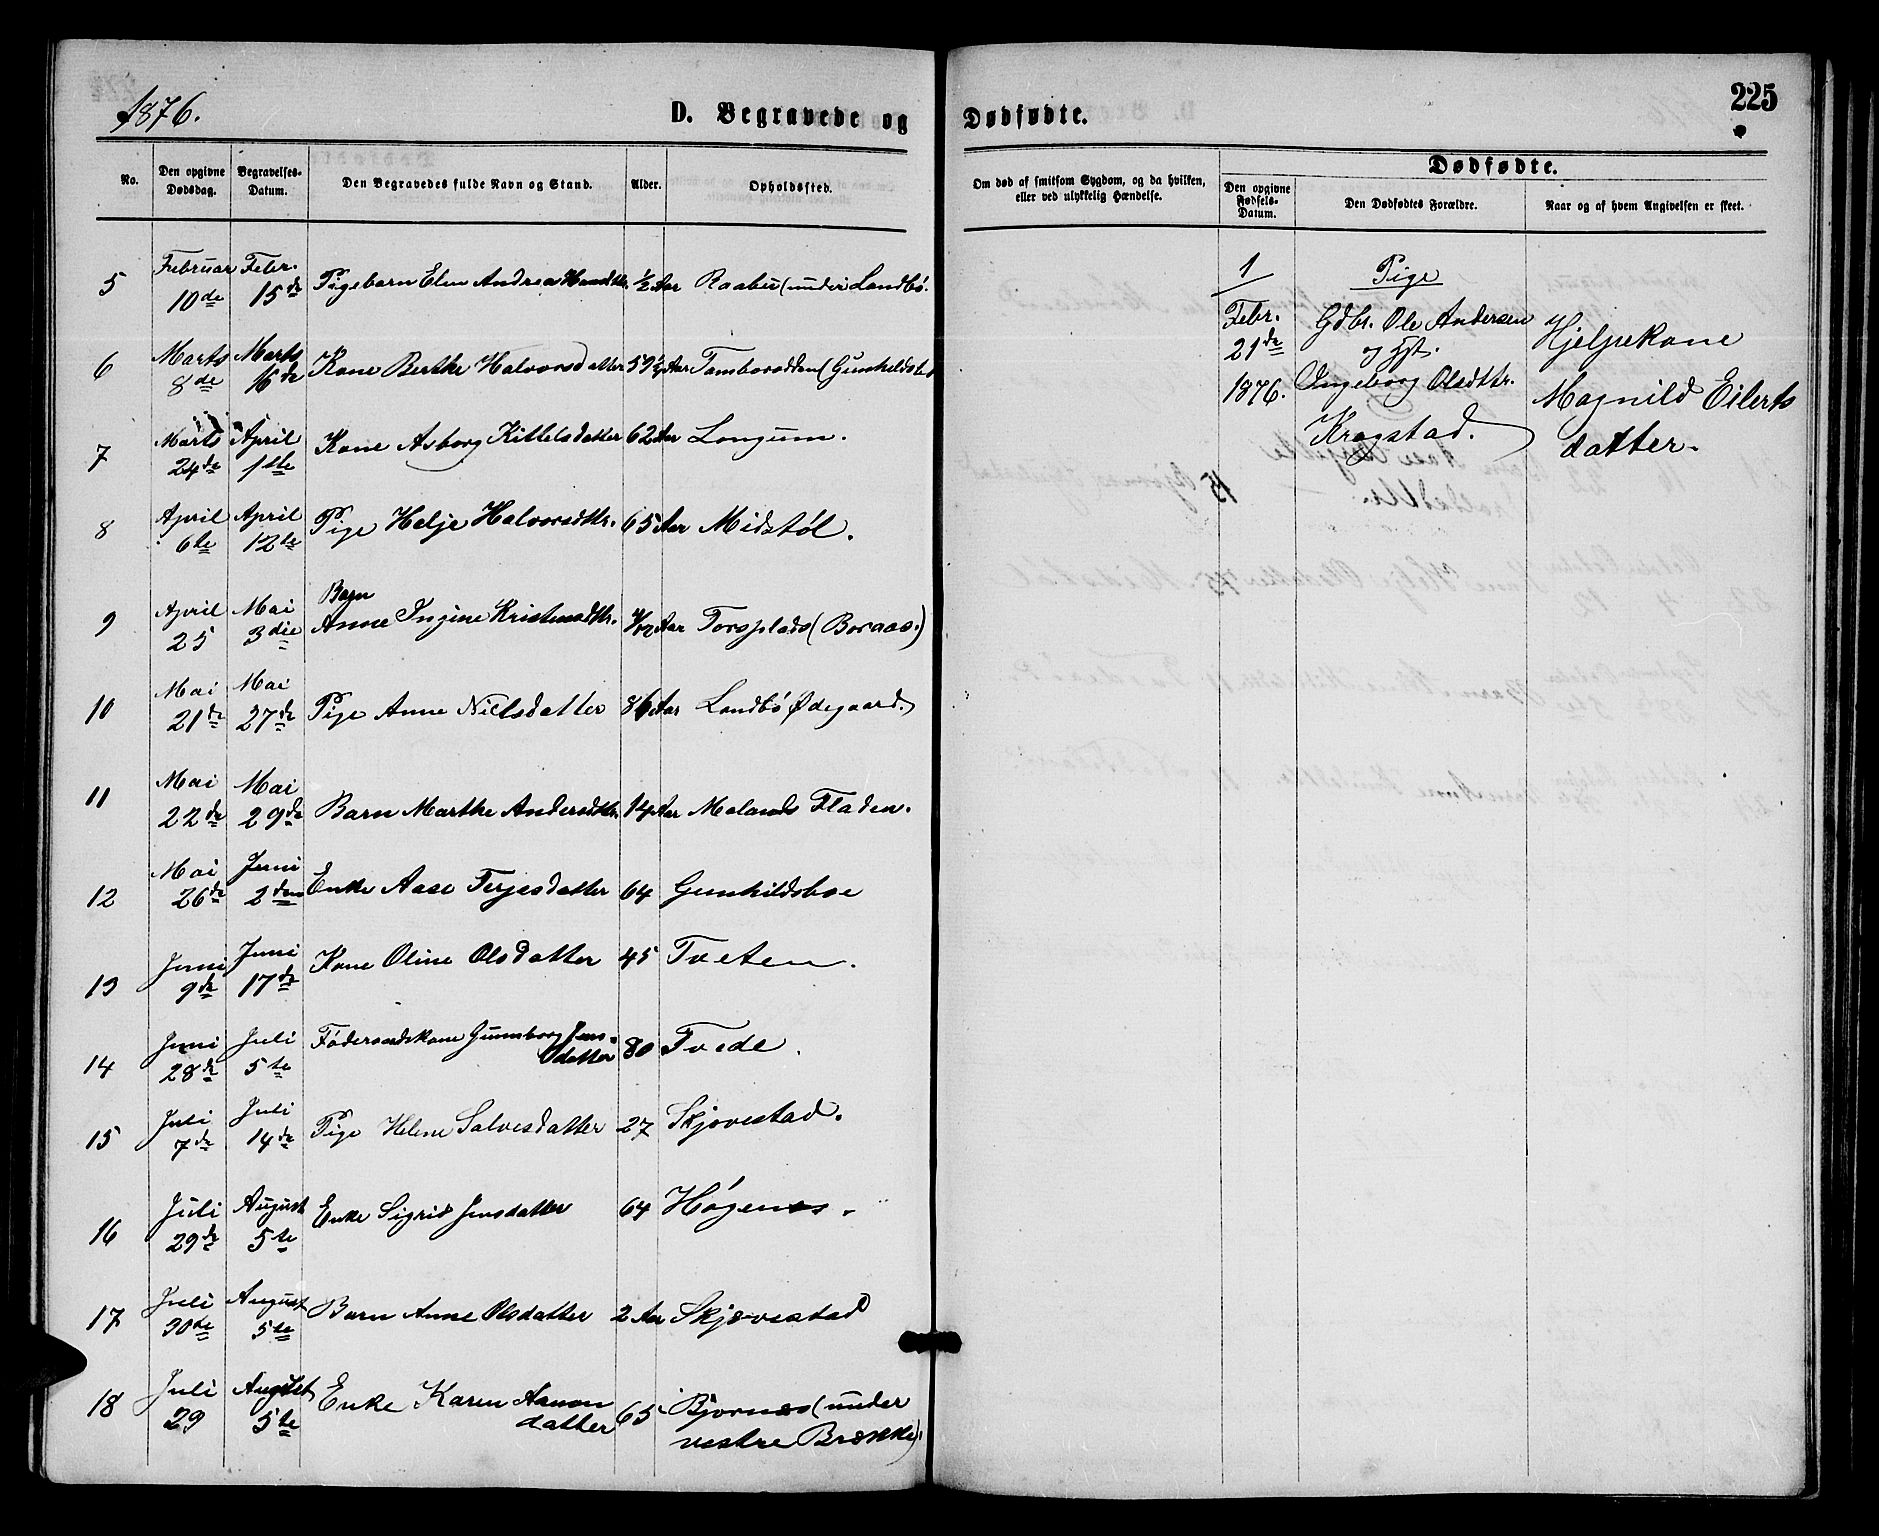 1876.
D. Begravede og
No.
Den opgivne Dødsdag.
Begravelses-Datum.
Den Begravedes fulde Navn og Stand.
Alder.
Opholdssted.
5 Februar 10de Febr. 15de Pigebarn Elen Andrea 1/2 Aar Raaber (under Landbø.
6 Marts 8de Marts 16de Kone Berthe Halvorsdatter 59 1/2 Aar Tamborodden (Gunhildsb
7 Marts 24de April 1ste Kone Asborg Kittelsdatter 62 Aar Longum.
8 April 6te April 12te Pige Helje Halvorsdttr. 65 Aar Midstøl.
9 April 25 Mai 3die Barn
Anne Ingine Aar Torsplads (Boraas.)
10 Mai 21de Mai 27de Pige Anne Nielsdatter 86 Aar Landbø Ødegaard.
11 Mai 22de Mai 29de Barn Marthe Andersdttr. 14 Aar Molands Fladen.
12 Mai 26de Juni 2den Enke Aase Terjesdatter 64 Gunhildsboe
13 Juni 9de Juni 17de Kone Oline Olsdatter 45 Tveten.
14 Juni 28de Juli 5te Føderaadskone Gunnborg Jens-
datter 80 Tvede.
15 Juli 7de Juli 14de Pige Helene Salvesdatter 27 Skjævestad.
16 Juli 29de August 5te Enke Sigrid Jensdatter 64 Høgenes.
17 Juli 30te August 5te Barn Anne Olsdatter 2 Aar Skjævestad
18 Juli 29 August 5te Enke Karen Aanon
datter 65 Bjornæs (under
vestre Brække).
225
Dødfødte.
Om død af smitsom Sygdom, og da hvilken,
eller ved ulykkelig Hændelse.
Dødfødte.
Den opgivne Fødsels-Datum.
Den Dødfødtes Forældre.
Naar og af hvem Angivelsen er skeet.
1
Febr.
21de
1876.
Pige
Gdbr. Ole Andersen
og Hst.
Ingeborg Olsdttr.
Kragstad.
Hjelpekone
Magnild Eilerts
datter.